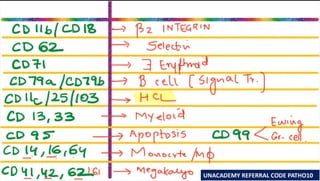 CD 11b/CD18 → β2 INTEGRIN
CD 62 → Selectin
CD71 → Erythroid
CD79a/CD79b → B cell [Signal Tr.]
CD11c/25/103 → HCL
CD 13,33 → Myeloid
CD 95 → Apoptosis CD99 Ewing Gr. cell
CD 14,16,64 → Monocyte/MØ
CD41,42,62 → Megakaryo
UNACADEMY REFERRAL CODE PATHO10